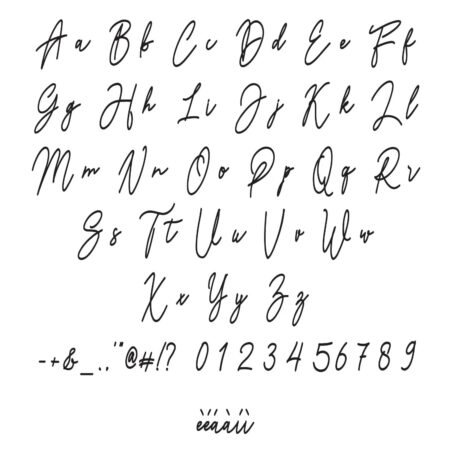 A a B b C c D d E e F f
G g H h I i J j K k L l
M m N n O o P p Q q R r
S s T t U u V v W w
X x Y y Z z
-+&_..'"@#!? 0 1 2 3 4 5 6 7 8 9
èéàáìí